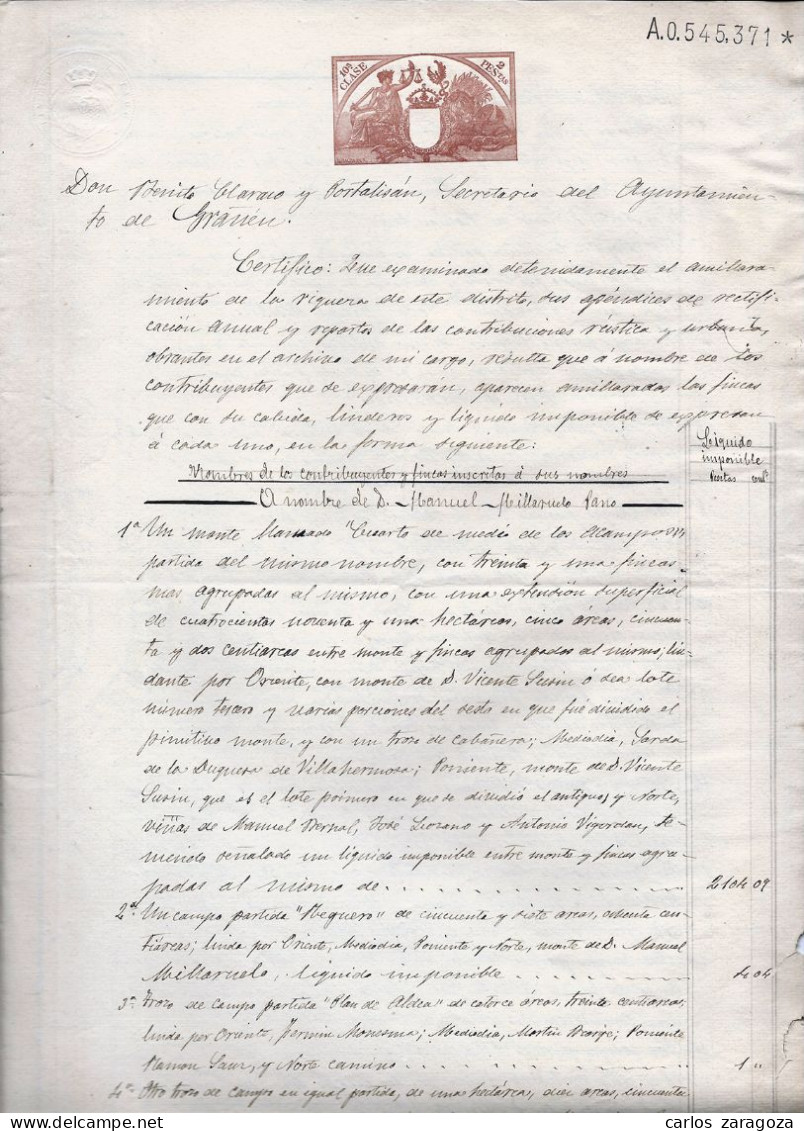 A.0.545.371*
10ª CLASE 2 PESTAS
Don Benito Claraco y Portalisán, Secretario del Ayuntamien-
to de Grañén.
Certifico: Que examinado detenidamente el amillara-
miento de la riqueza de este distrito, sus apéndices de rectifi-
cación anual y repartos de las contribuciones rústica y urbana,
obrantes en el archivo de mi cargo, resulta que á nombre de los
contribuyentes que se expresaran, aparecen amillaradas las fincas
que con su cabida, linderos y líquido imponible se expresan
á cada uno, en la forma siguiente:
Líquido
imponible
Pesetas cents
Nombres de los contribuyentes y fincas inscritas á sus nombres
A nombre de D. Manuel Millaruelo Pano
1ª Un monte llamado "Cuarto de medio de los Acampos"
partida del mismo nombre, con treinta y una fincas
mas agrupadas al mismo, con una extensión superficial
de cuatrocientas noventa y una hectáreas, cinco áreas, cincuen-
ta y dos centiareas entre monte y fincas agrupadas al mismo; lin-
dante por Oriente, con monte de D. Vicente Susin ó sea lote
número tercero y varias porciones del sesto en que fué dividido el
primitivo monte, y con un trozo de cabañera; Mediodia, Sarda
de la Duquesa de Villahermosa; Poniente, monte de D. Vicente
Susin, que es el lote primero en que se dividió el antiguo, y Norte,
viñas de Manuel Bernal, José Lozano y Antonio Vigordan, te-
niendo señalado un líquido imponible entre monte y fincas agru-
padas al mismo de . . . . . . . . . . 2104 09
2ª Un campo partida "Reguero" de cincuenta y siete areas, ochenta cen-
tiáreas; linda por Oriente, Mediodia, Poniente y Norte, monte de D. Manuel
Millaruelo, líquido imponible . . . . . . . . . . 4 04
3ª Trozo de campo partida "Plan de Aldea" de catorce áreas, treinta centiareas,
linda por Oriente, Fermin Monesma; Mediodia, Martin; Poniente
Ramon Sanz, y Norte camino . . . . . . . . . . 1 "
4ª Otro trozo de campo en igual partida, de una hectárea, diez areas, cincuenta
carlos zaragoza